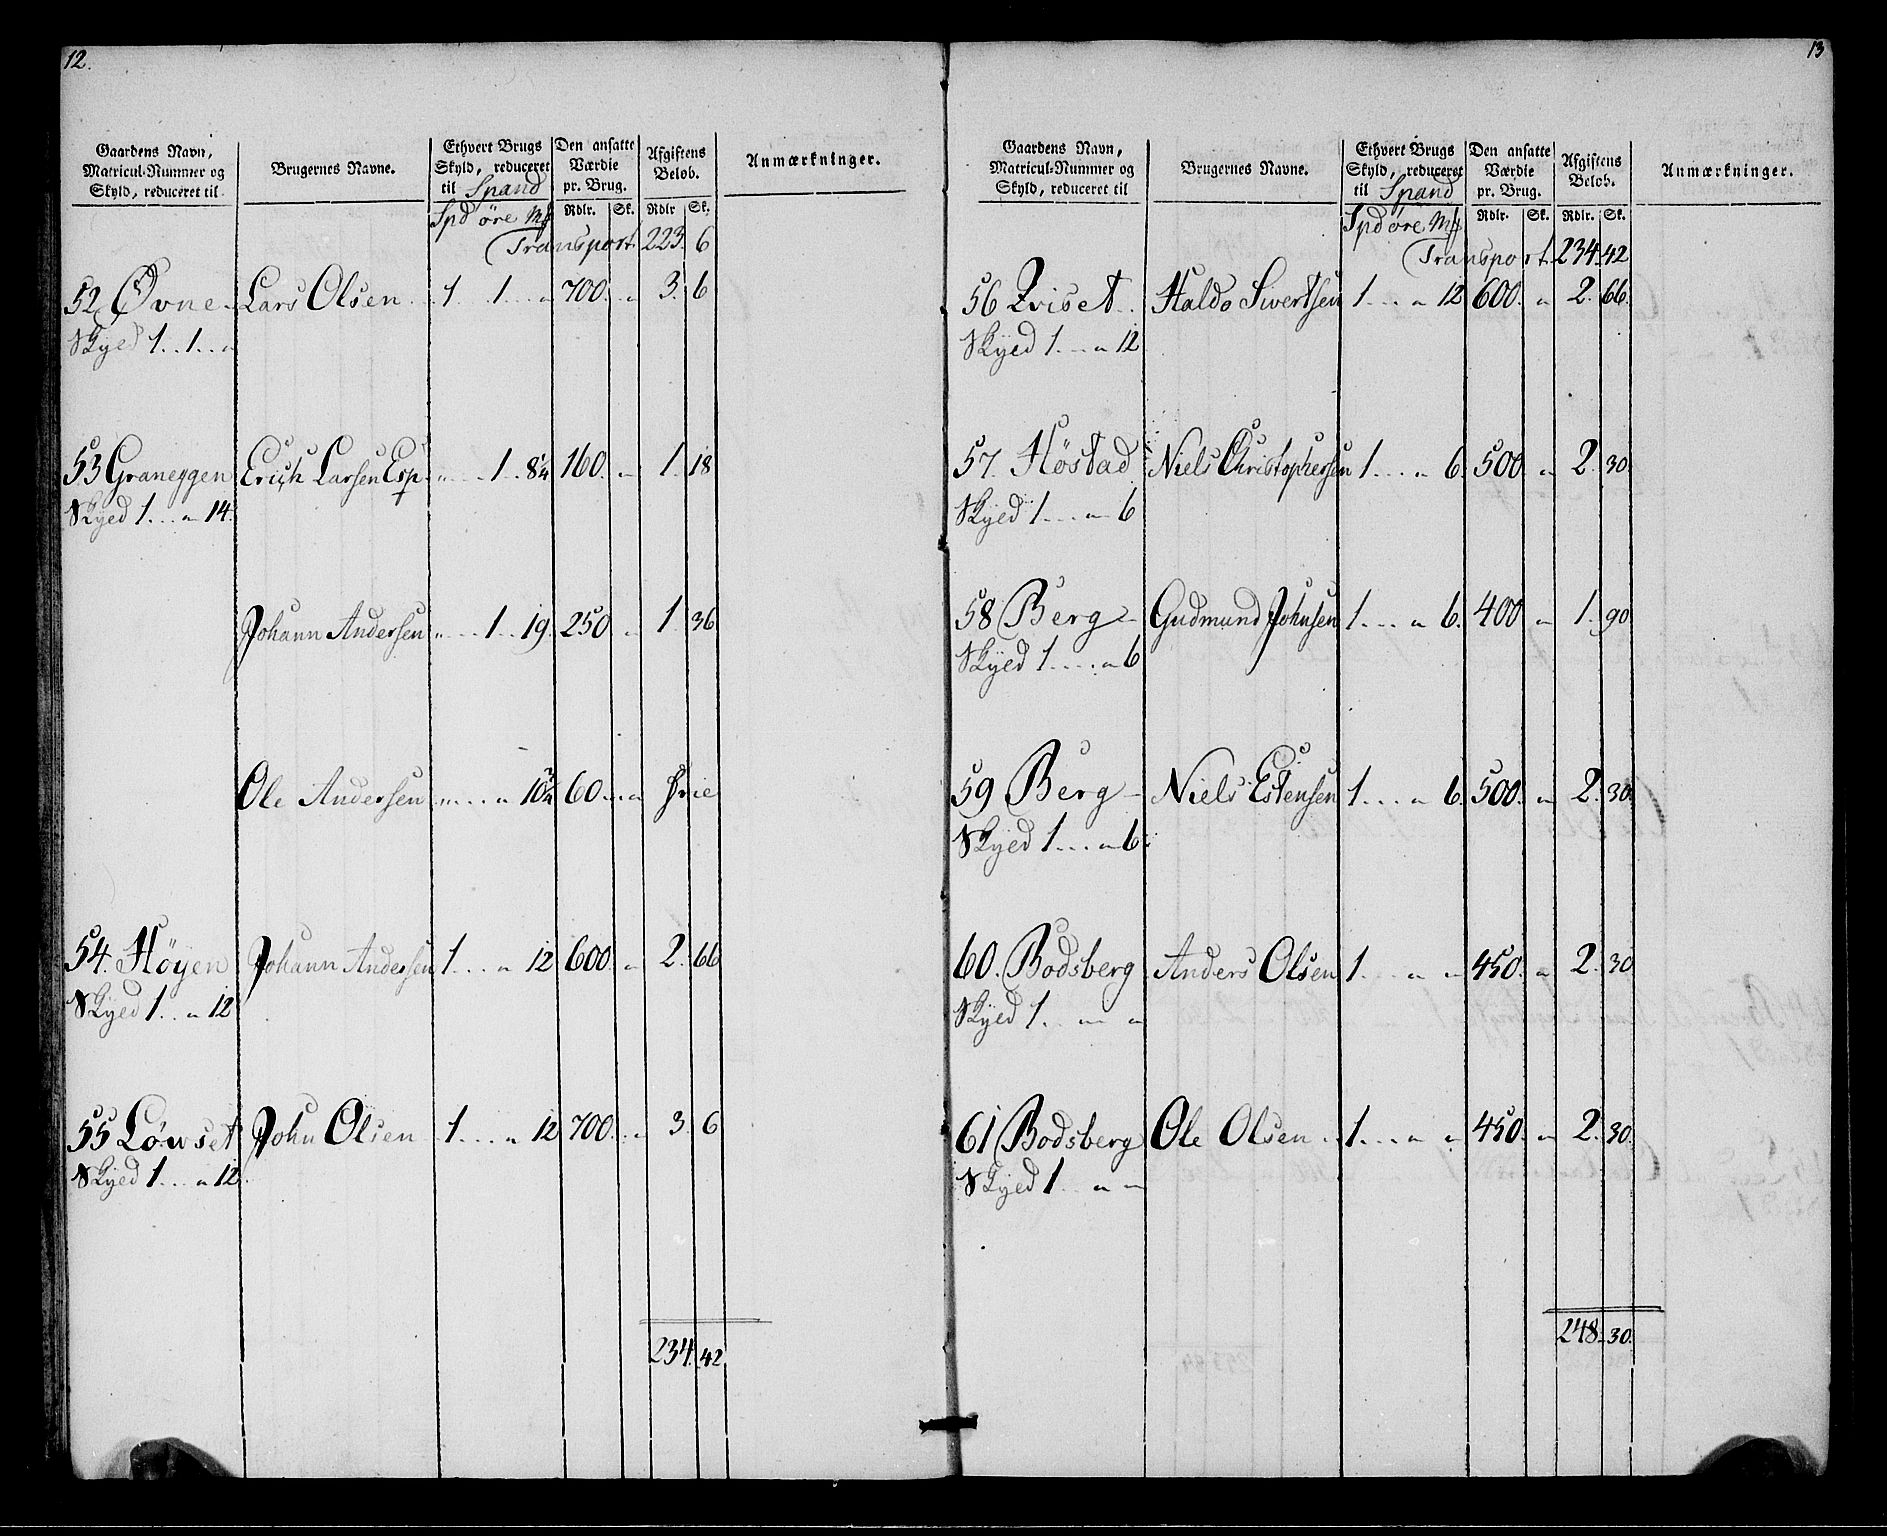 12.
Gaardens Navn, Matricul-Nummer og Skyld, reduceret til
Brugernes Navne.
Ethvert Brugs Skyld, reduceret til Spand
Den ansatte Værdie pr. Brug.
Afgiftens Beløb.
Anmærkninger.
Spd øre Mk Rdlr. Sk. Rdlr Sk.
Transport 223. 6
52 Øvne Lars Olsen 1 1 " 700. " 3. 6
Skyld 1..1.. "
53 Graneggen Erich Larsen Esp. " 1. 8¼ 160. " 1. 18
Skyld 1... " 14.
Johann Andersen " 1.. 19. 250 " 1. 36
Ole Andersen " " 10¾ 60. " frie
54. Høyen Johann Andersen 1... " 12 600 " 2. 66
Skyld 1... " 12
55 Løwset John Olsen 1... " 12 700. " 3. 6
Skyld 1... " 12.
234. 42
13
Gaardens Navn, Matricul-Nummer og Skyld, reduceret til
Brugernes Navne.
Ethvert Brugs Skyld, reduceret til Spand
Den ansatte Værdie pr. Brug.
Afgiftens Beløb.
Anmærkninger.
Spd øre Mk Rdlr. Sk. Rdlr. Sk.
Transport 234. 42
56 Qviset Haldo Sivertsen 1... " 12 600. " 2. 66.
Skyld 1... " 12
57. Høstad Niels Christophersen 1... " 6. 500 " 2. 30.
Skyld 1... " 6
58 Berg Gudmund Johnsen 1... " 6. 400 " 1. 90
Skyld 1... " 6
59 Berg Niels Estensen 1... " 6. 500. " 2. 30.
Skyld 1... " 6.
60. Bodsberg Anders Olsen 1... " " 450. " 2. 30
Skyld 1.. " "
61 Bodsberg Ole Olsen 1... " " 450. " 2. 30.
Skyld 1.. " "
248. 30.